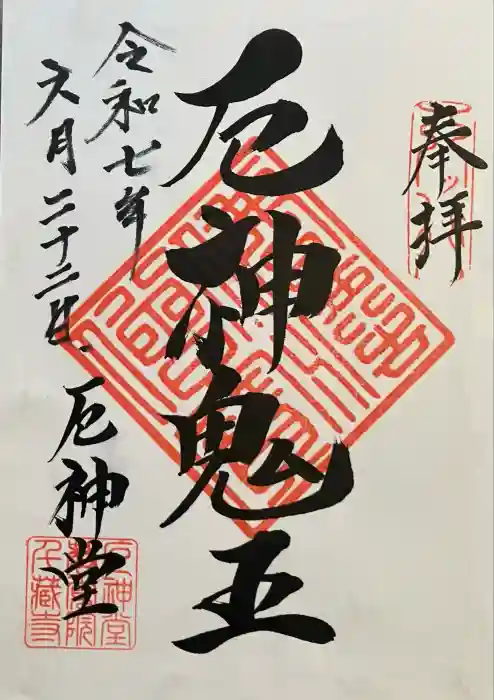 奉拝
厄神鬼王
令和七年
六月二十二日
厄神堂